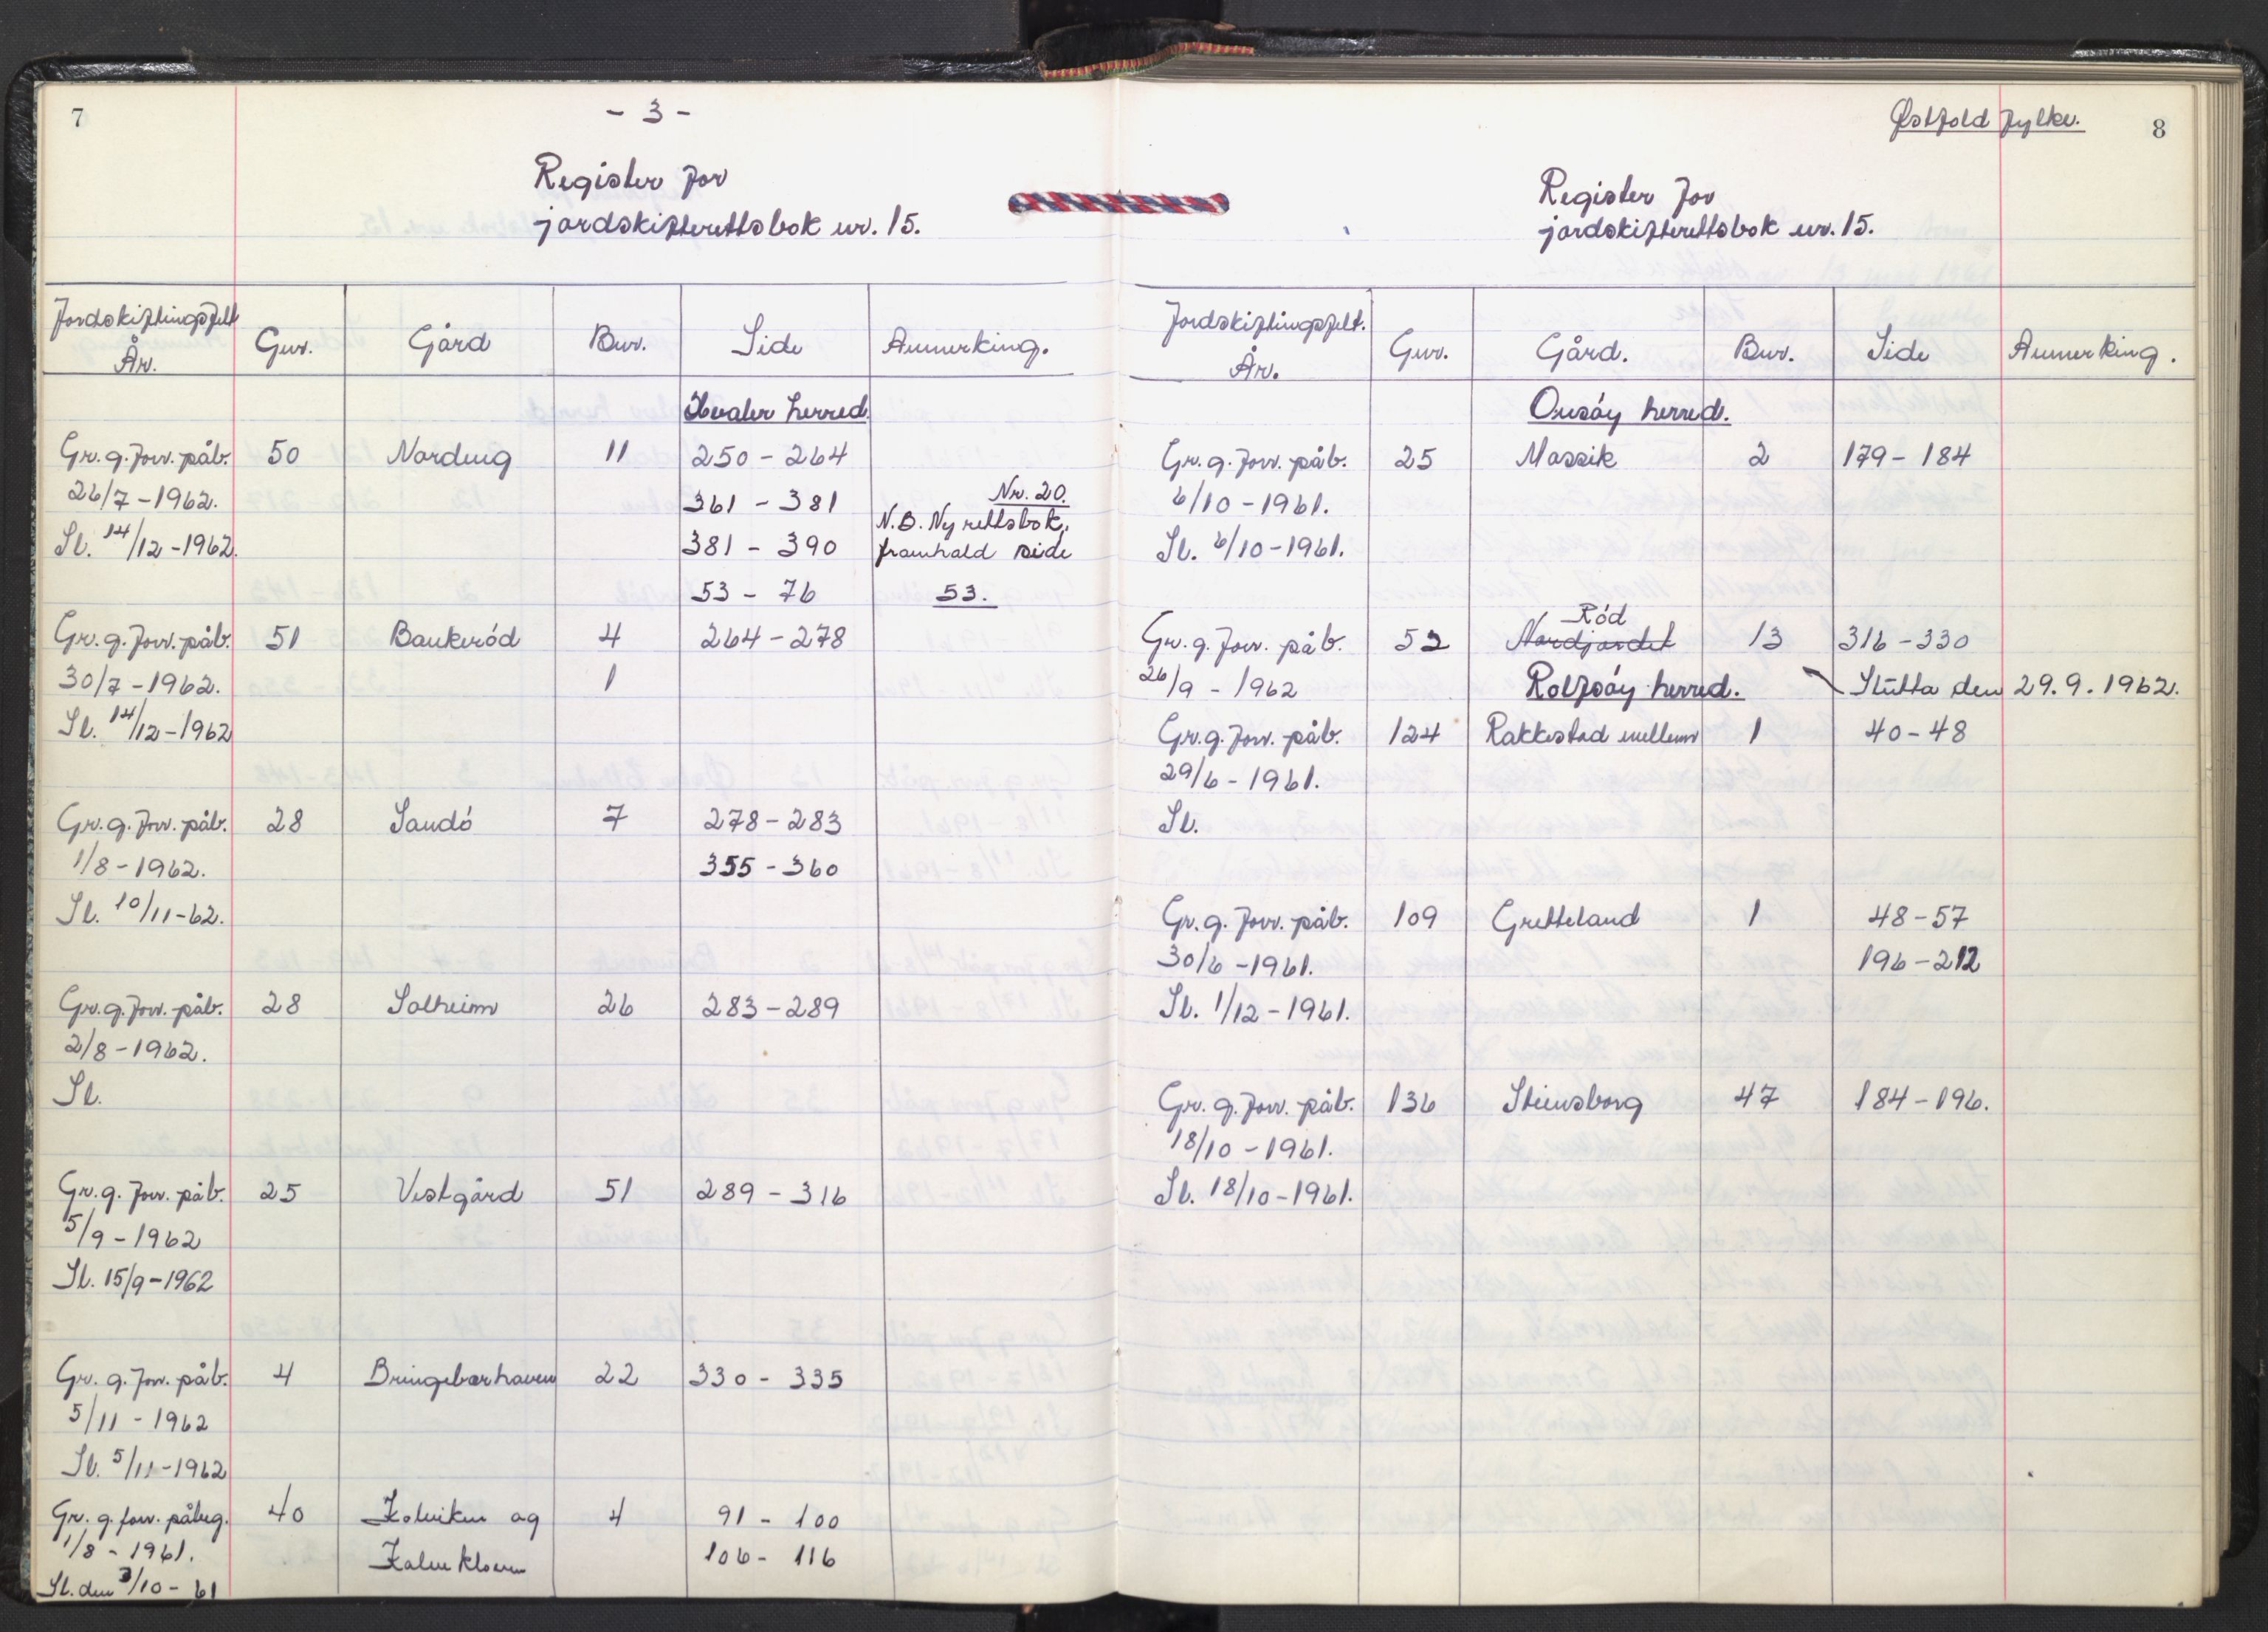 7
- 3 -
Register for
jordskifterettsbok nr. 15.
Jordskiftingsfelt
År.
Gnr.
Gård
Bnr.
Side
Anmerking.
Hvaler herred.
Gr. g. forr. påb. 50 Nordeng 11 250 - 264
26/7 - 1962. 361 - 381 Nr. 20.
N.B. Ny rettsbok,
Sl. 14/12 - 1962. 381 - 390 framhald side
53 - 76 53.
Gr. g. forr. påb. 51 Bankerød 4 264 - 278
30/7 - 1962. 1
Sl. 14/12 - 1962
Gr. g. forr. påb. 28 Sandö 7 278 - 283
1/8 - 1962. 355 - 360
Sl. 10/11 - 62.
Gr. g. forr. påb. 28 Solheim 26 283 - 289
2/8 - 1962.
Sl.
Gr. g. forr. påb. 25 Vestgård 51 289 - 316
5/9 - 1962
Sl. 15/9 - 1962
Gr. g. forr. påb. 4 Bringebærhaven 22 330 - 335
5/11 - 1962
Sl. 5/11 - 1962
Gr. g. forr. påbeg. 40 og 4 91 - 100
1/8 - 1961. 106 - 116
Sl. den 3/10 - 61
Østfold fylke.
8
Register for
jordskifterettsbok nr. 15.
Jordskiftingsfelt.
År.
Gnr.
Gård.
Bnr.
Side
Anmerking.
Onsøy herred.
Gr. g. forr. påb. 25 Mossik 2 179 - 184
6/10 - 1961.
Sl. 6/10 - 1961.
Röd
Gr. g. forr. påb. 52 Nordjordet 13 316 - 330
26/9 - 1962 Rolfsøy herred. Slutta den 29.9.1962.
Gr. g. forr. påb. 124 Rakkestad mellem 1 40 - 48
29/6 - 1961.
Sl.
Gr. g. forr. påb. 109 Gretteland 1 48 - 57
30/6 - 1961. 196 - 212
Sl. 1/12 - 1961.
Gr. g. forr. påb. 136 Steinsborg 47 184 - 196.
18/10 - 1961.
Sl. 18/10 - 1961.